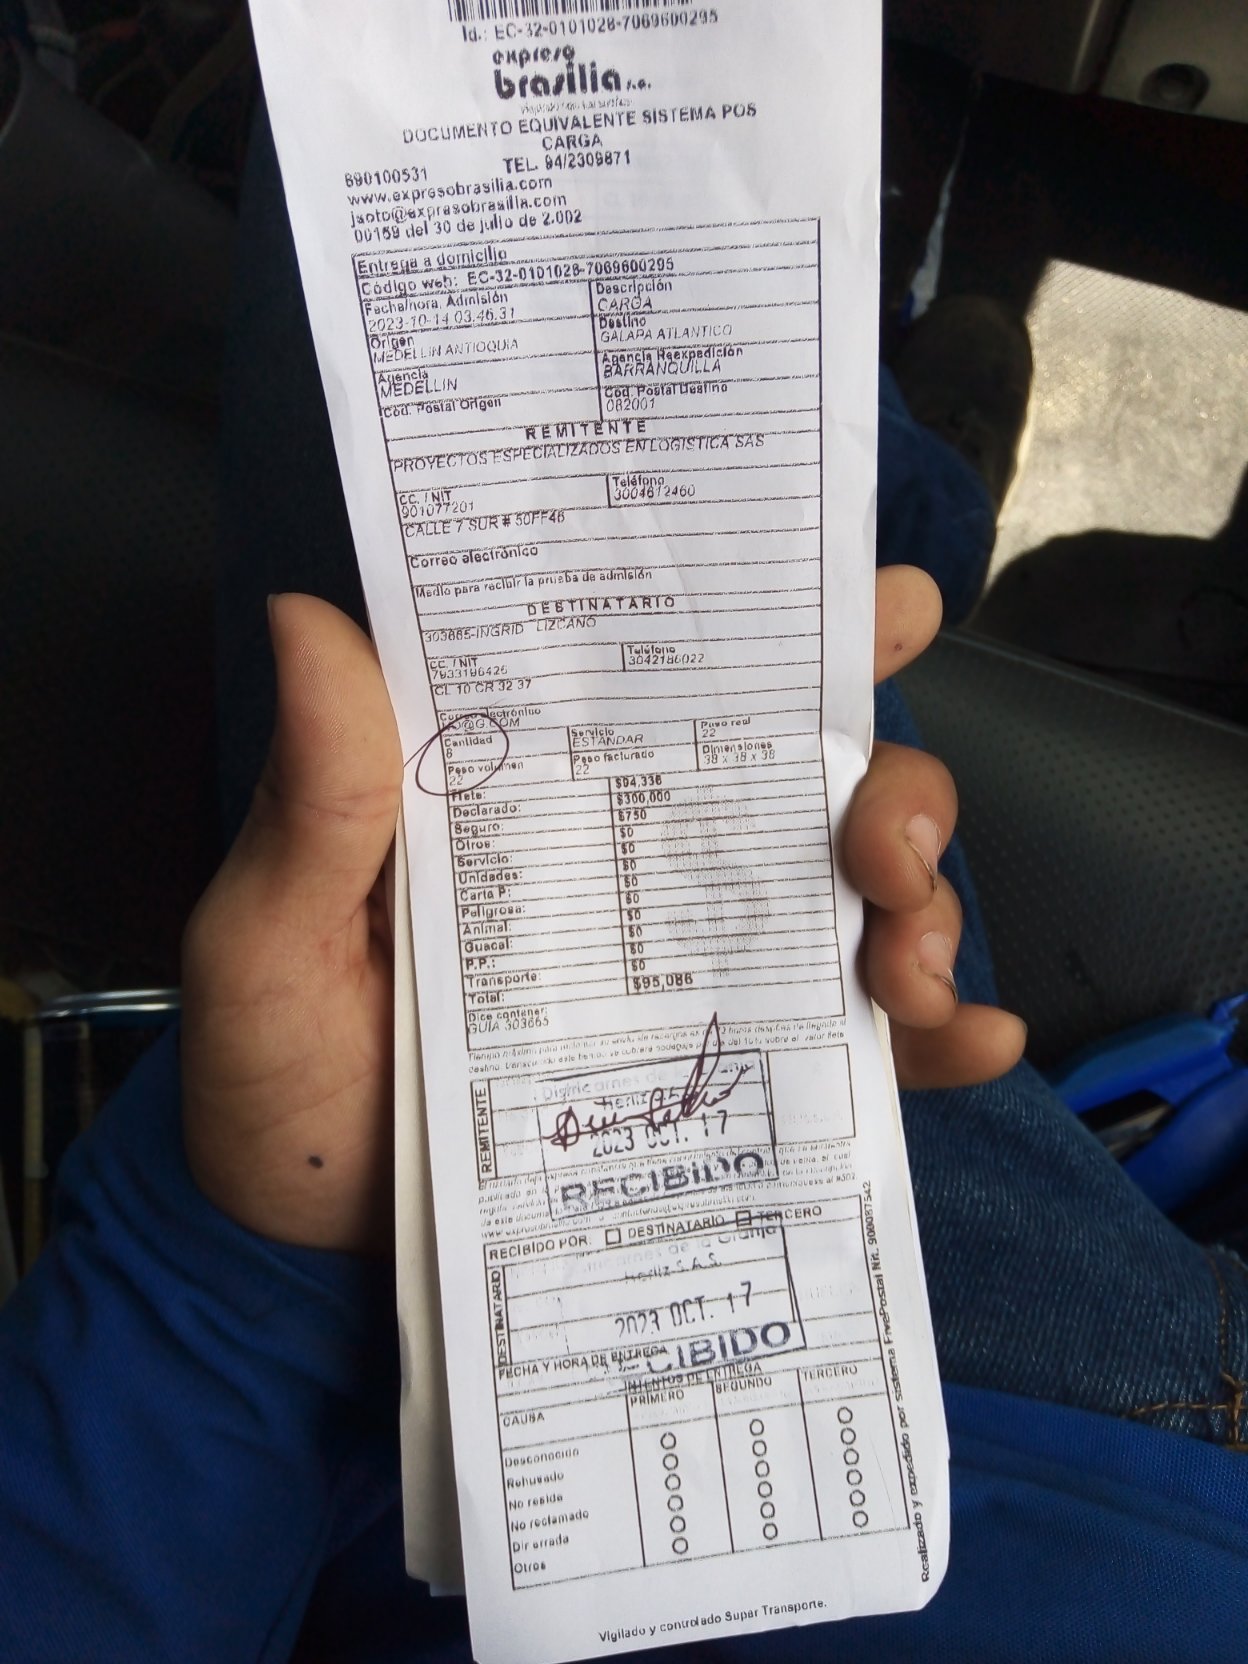 Id.: EC-32-0101028-7069600295
expreso
brasilia s.a.
DOCUMENTO EQUIVALENTE SISTEMA POS
CARGA
TEL. 94/2309871
890100531
www.expresobrasilia.com
jsoto@expresobrasilia.com
00159 del 30 de julio de 2.002
Entrega a domicilio
Código web: EC-32-0101028-7069600295
Fecha/hora, Admisión
2023-10-14 03.46.31
Descripción
CARGA
Origen
MEDELLIN ANTIOQUIA
Destino
GALAPA ATLANTICO
Agencia
MEDELLIN
Agencia Reexpedición
BARRANQUILLA
Cod. Postal Origen
Cod. Postal Destino
082001
REMITENTE
PROYECTOS ESPECIALIZADOS EN LOGISTICA SAS
CC. / NIT
901077201
Teléfono
3004612460
CALLE 7 SUR # 50FF46
Correo electrónico
Medio para recibir la prueba de admisión
DESTINATARIO
303665-INGRID LIZCANO
CC. / NIT
7933196426
Teléfono
3042186022
CL 10 CR 32 37
Correo electrónico
@G.COM
Cantidad
8
Servicio
ESTANDAR
Peso real
22
Peso volumen
22
Peso facturado
22
Dimensiones
38 x 38 x 38
Flete: $94,336
Declarado: $300,000
Seguro: $750
Otros: $0
Servicio: $0
Unidades: $0
Carta P: $0
Peligrosa: $0
Animal: $0
Guacal: $0
P.P.: $0
Transporte: $0
Total: $95,086
Dice contener:
GUIA 303665
REMITENTE
2023 OCT. 17
RECIBIDO
RECIBIDO POR: DESTINATARIO TERCERO
DESTINATARIO
de la Granja
Herliz S.A.S.
2023 OCT. 17
RECIBIDO
FECHA Y HORA DE ENTREGA
INTENTOS DE ENTREGA
CAUSA PRIMERO SEGUNDO TERCERO
Desconocido
Rehusado
No reside
No reclamado
Dir errada
Otros
Realizado y expedido por sistema FivePostal Nit. 900087542
Vigilado y controlado Super Transporte.